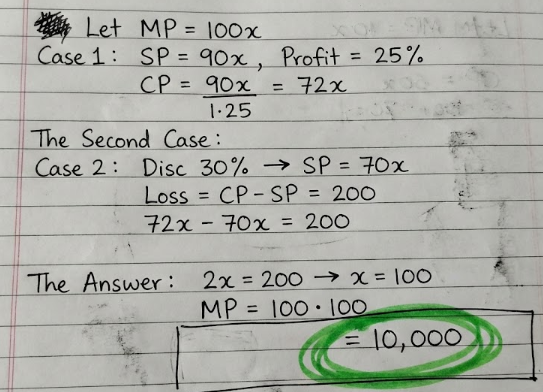 Let MP = 100x
Case 1: SP = 90x, Profit = 25%
CP = 90x/1.25 = 72x
The Second Case:
Case 2: Disc 30% → SP = 70x
Loss = CP - SP = 200
72x - 70x = 200
The Answer: 2x = 200 → x = 100
MP = 100 · 100
= 10,000